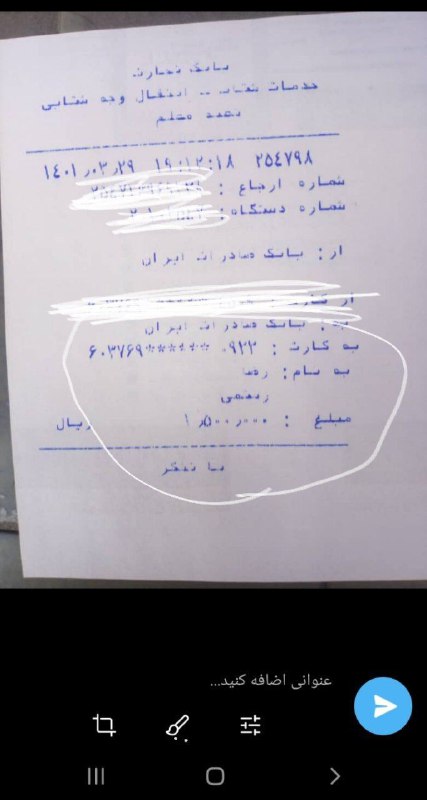 بانک تجارت
خدمات شتاب -- انتقال وجه شتابی
۱۴۰۱٫۰۳٫۲۹ ۱۹:۱۲:۱۸ ۲۵۴۷۹۸
شماره ارجاع :
شماره دستگاه:
از: بانک صادرات ایران
از کارت :
به: بانک صادرات ایران
به کارت : ۶۰۳۷۶۹******۰۹۲۲
به نام: رضا
مبلغ : ۱٫۵۰۰٫۰۰۰ ریال
با تشکر
عنوانی اضافه کنید...